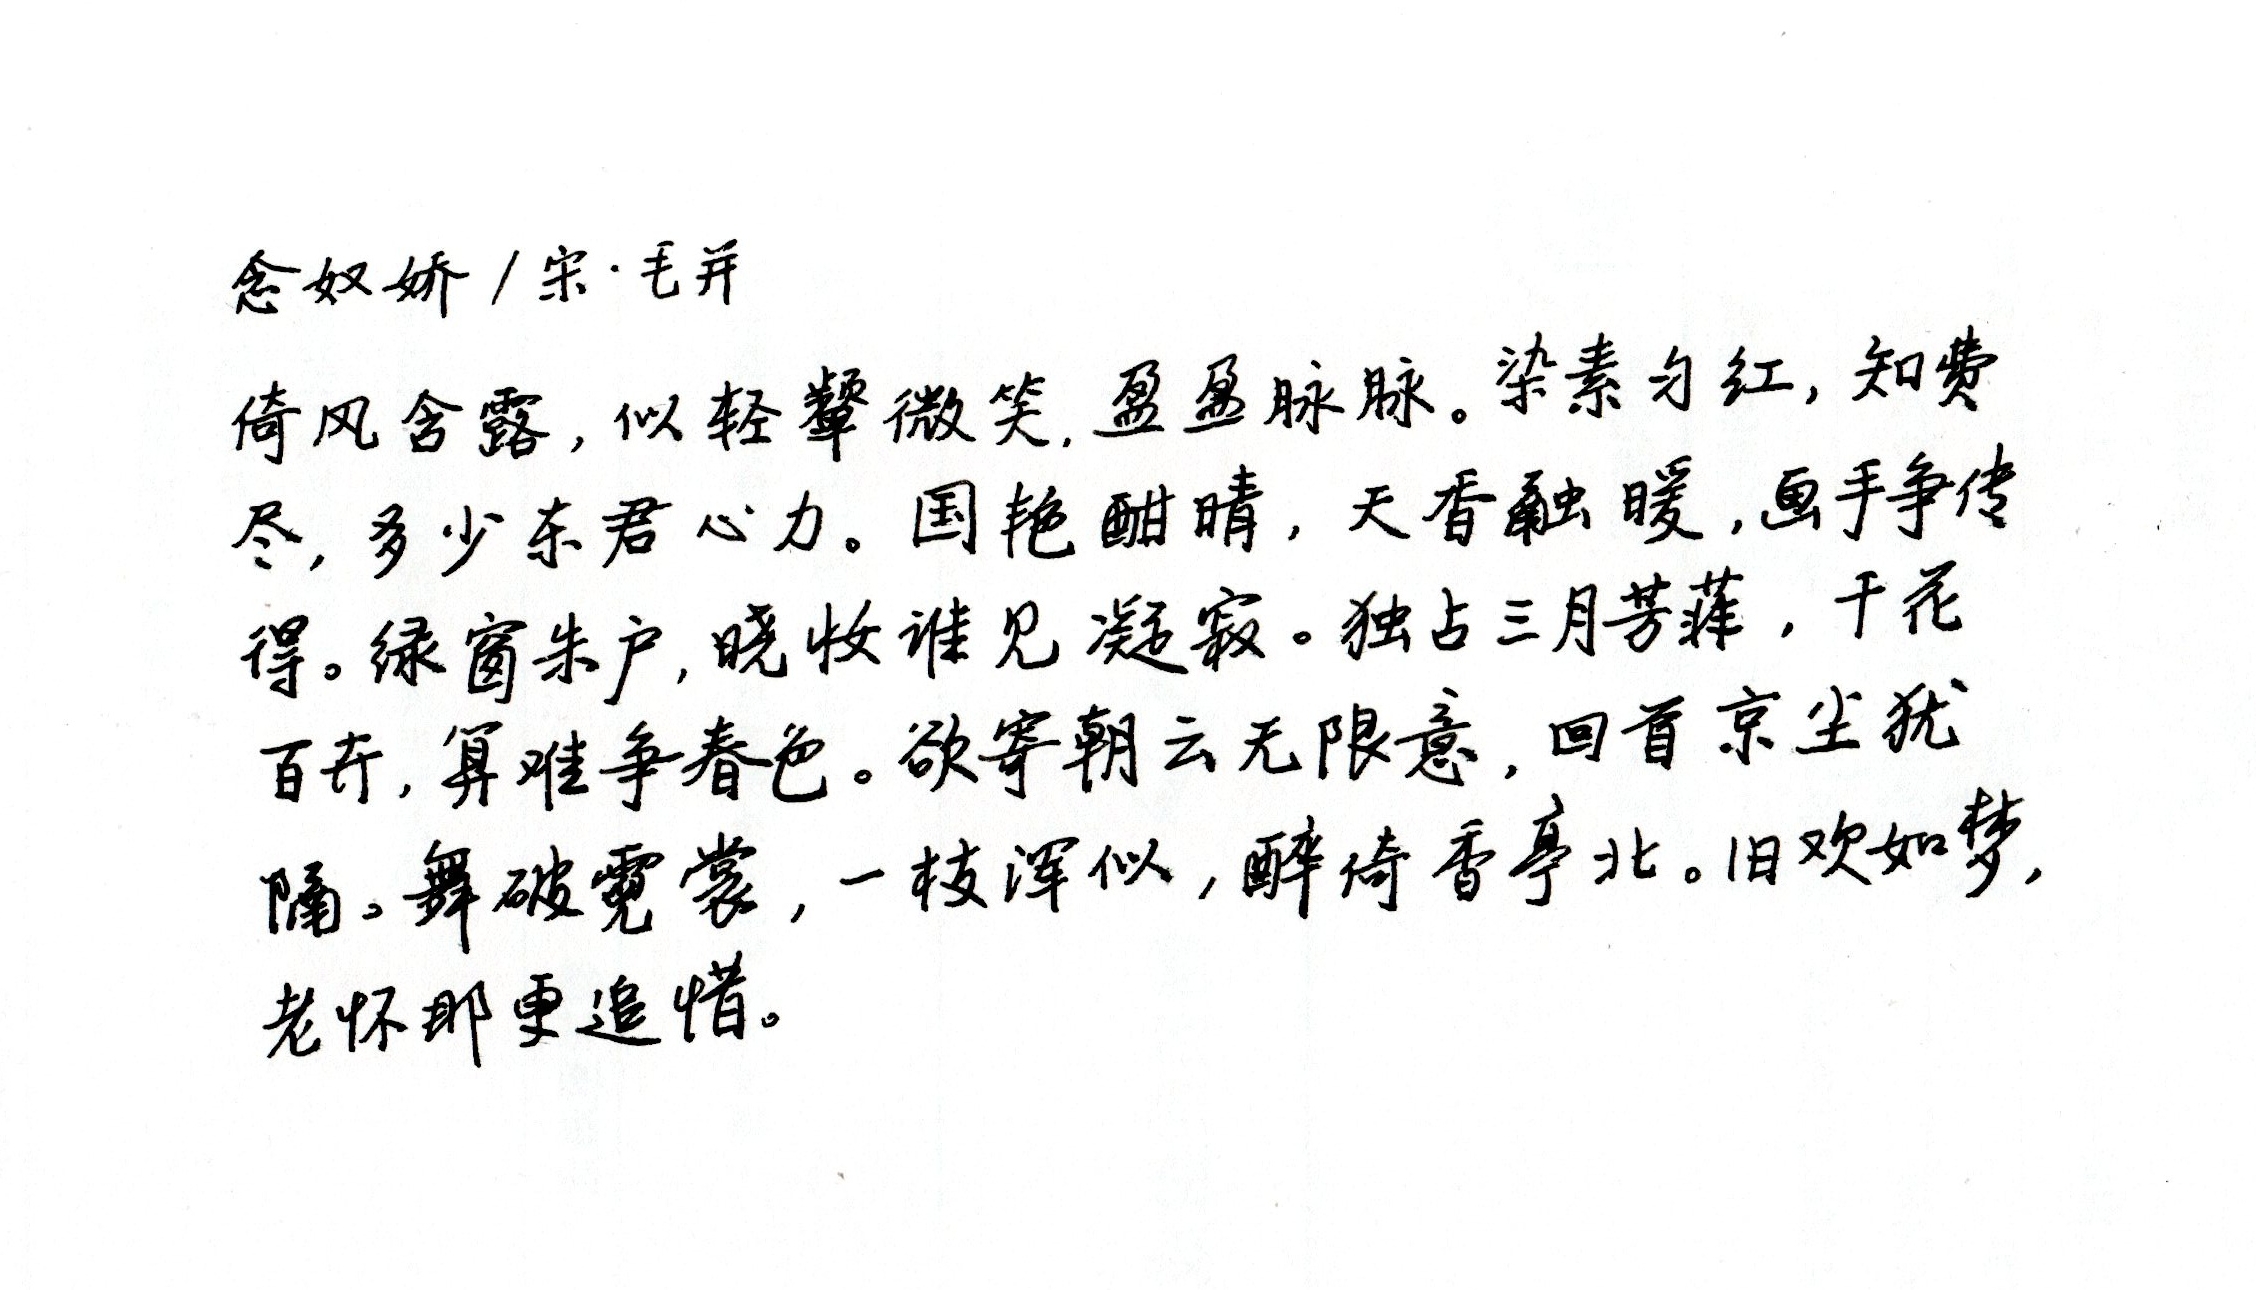 念奴娇/宋·毛并
倚风含露,似轻颦微笑,盈盈脉脉。染素匀红,知费
尽,多少东君心力。国艳酣晴,天香融暖,画手争传
得。绿窗朱户,晓妆谁见凝寂。独占三月芳菲,千花
百卉,算难争春色。欲寄朝云无限意,回首京尘犹
隔。舞破霓裳,一枝浑似,醉倚香亭北。旧欢如梦,
老怀那更追惜。